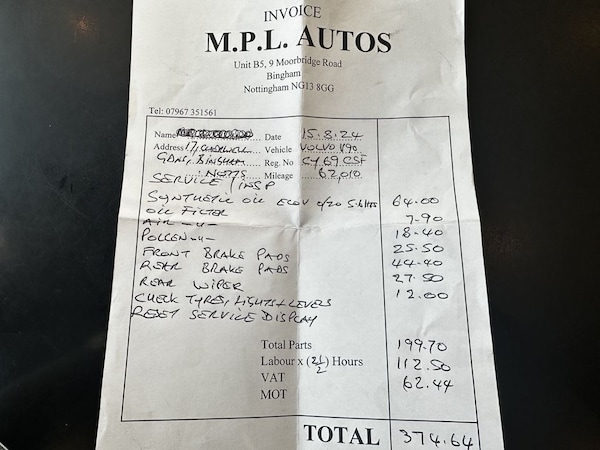 INVOICE
M.P.L. AUTOS
Unit B5, 9 Moorbridge Road
Bingham
Nottingham NG13 8GG
Tel: 07967 351561
Name Date 15.8.24
Address 17, Vehicle VOLVO V90
GDNS, BINGHAM Reg. No CY69 CSF
NOTTS Mileage 62,010
SERVICE / INSP
SYNTHETIC OIL 0/20 5.6 LTRS 64.00
OIL FILTER 7-90
AIR -"- 18-40
POLLEN -"- 25.50
FRONT BRAKE PADS 44-40
REAR BRAKE PADS 27.50
REAR WIPER 12.00
CHECK TYRES, LIGHTS + LEVELS
RESET SERVICE DISPLAY
Total Parts 199.70
Labour x (2½) Hours 112.50
VAT 62.44
MOT
TOTAL 374.64